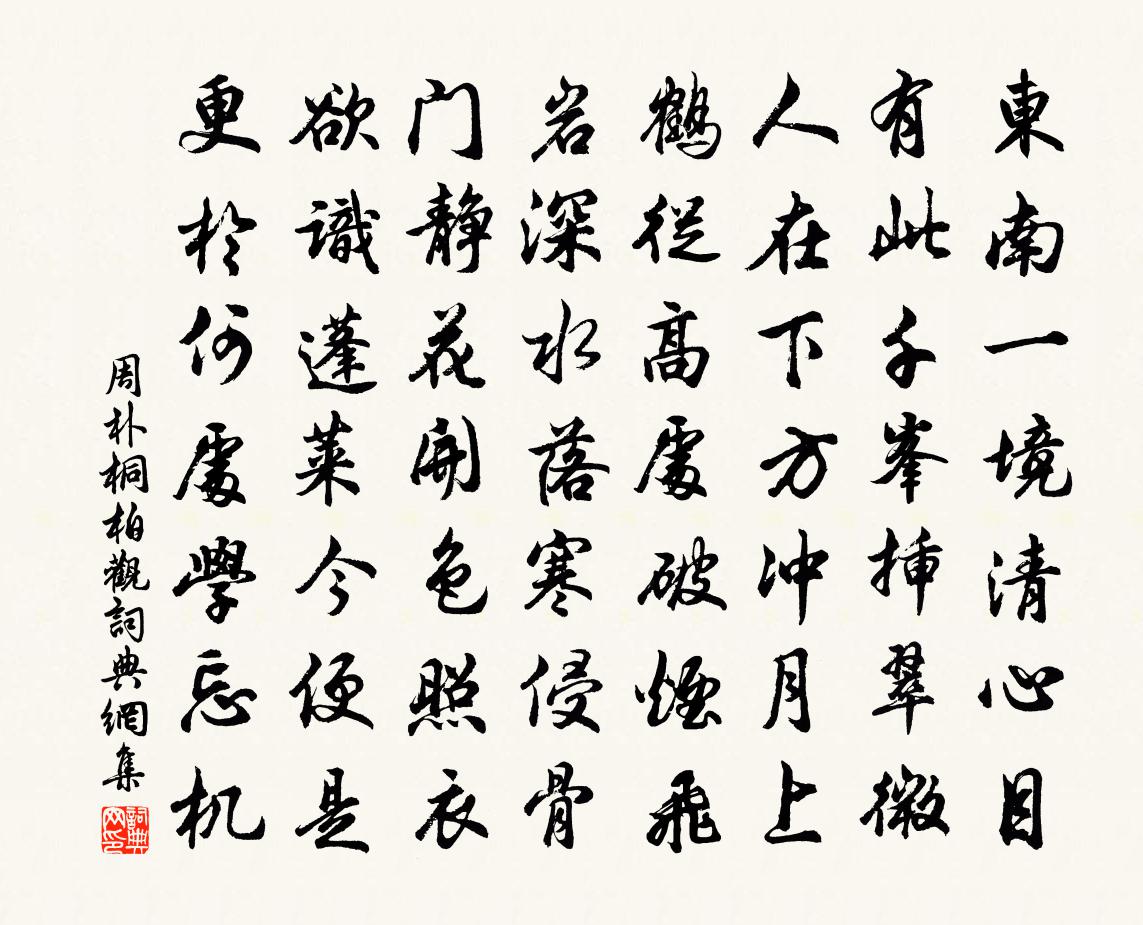 東南一境清心目
有此千峯揷翠微
人在下方冲月上
鶴從高處破煙飛
岩深水落寒侵骨
门静花開色照衣
欲識蓬萊今便是
更於何處學忘机
周朴桐柏觀詞典網集
詞典网印